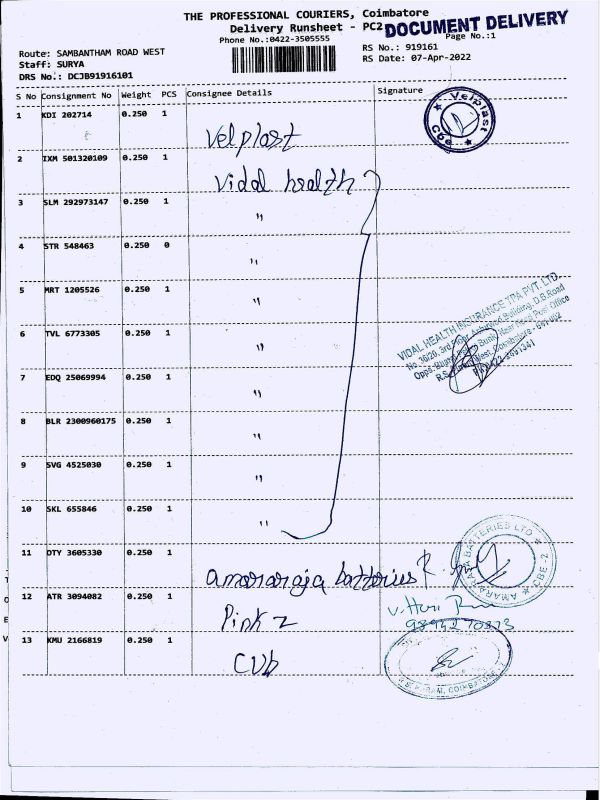 THE PROFESSIONAL COURIERS, Coimbatore
Delivery Runsheet - PC2
DOCUMENT DELIVERY
Phone No.:0422-3505555
Page No.:1
Route: SAMBANTHAM ROAD WEST
RS No.: 919161
Staff: SURYA
RS Date: 07-Apr-2022
DRS No.: DCJB91916101
S No Consignment No Weight PCS Consignee Details Signature
1 KDI 202714 0.250 1 Velplast
Velplast
Cbe
2 IXM 501320109 0.250 1 Vidal health
3 SLM 292973147 0.250 1 "
4 STR 548463 0.250 0 "
5 MRT 1205526 0.250 1 "
VIDAL HEALTH INSURANCE TPA PVT. LTD.
6 TVL 6773305 0.250 1 "
7 EDQ 25069994 0.250 1 "
8 BLR 2300960175 0.250 1 "
9 SVG 4525030 0.250 1 "
10 SKL 655846 0.250 1 "
11 DTY 3605330 0.250 1 amararaja batteries
AMARARAJA BATTERIES LTD
CBE-2
12 ATR 3094082 0.250 1 Pink 2
13 KMU 2166819 0.250 1 CUb
COIMBATORE